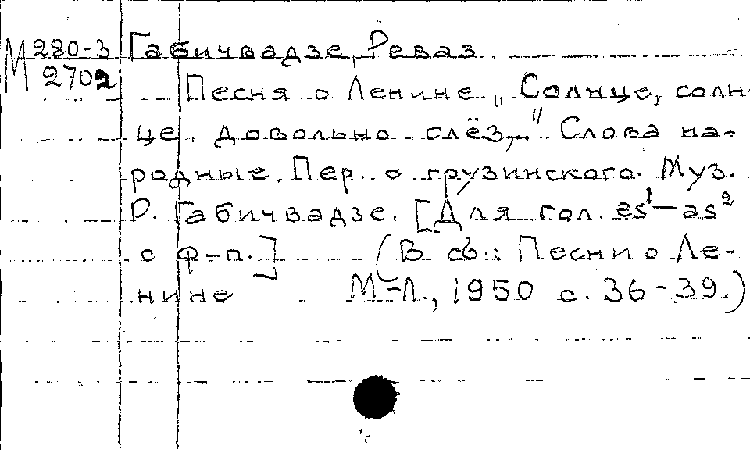 М 280-3 Габичвадзе, Реваз
2702
Песня о Ленине „Солнце, солн-
це, довольно слёз,..." Слова на-
родные. Пер. с грузинского. Муз.
Р. Габичвадзе. [Для гол. es¹–as²
с ф-п.] (В сб.: Песни о Ле-
нине М-Л., 1950 с. 36-39.)